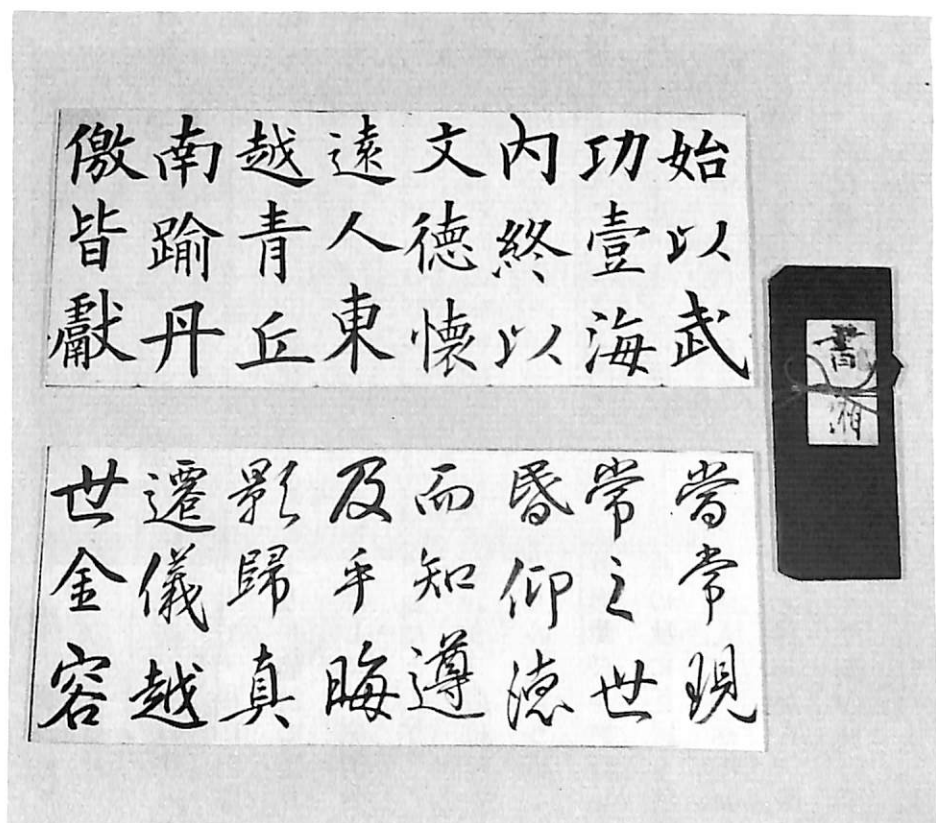 始以武
功壹海
內終以
文德懷
遠人東
越青丘
南踰丹
儌皆獻
當常現
常之世
昏仰德
而知遵
及乎晦
影歸真
遷儀越
世金容